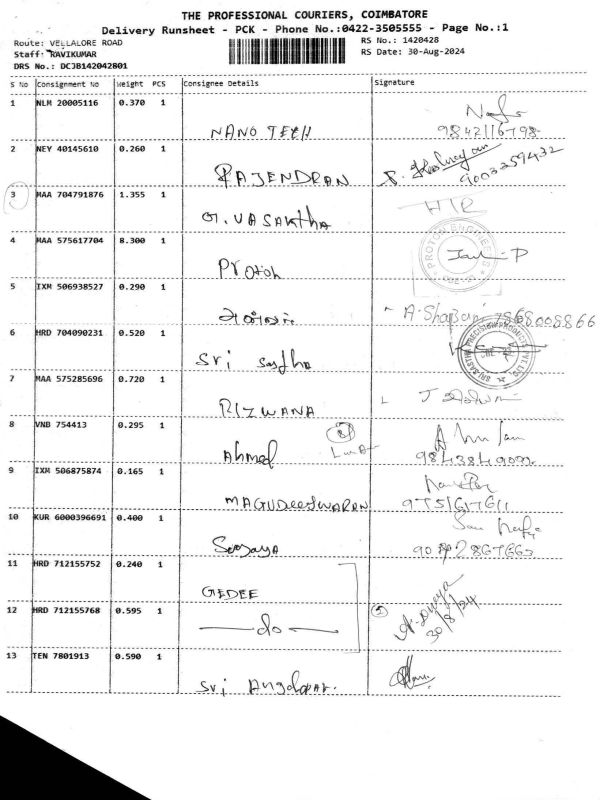 THE PROFESSIONAL COURIERS, COIMBATORE
Delivery Runsheet - PCK - Phone No.:0422-3505555 - Page No.:1
Route: VELLALORE ROAD
RS No.: 1420428
Staff: RAVIKUMAR
RS Date: 30-Aug-2024
DRS No.: DCJB142042801
S No Consignment No Weight PCS Consignee Details Signature
1 NLM 20005116 0.370 1
NANO TECH 9842116798
2 NEY 40145610 0.260 1
RAJENDRAN 9003259432
3 MAA 704791876 1.355 1
G. VASANtHA
4 MAA 575617704 8.300 1
Proton
5 IXM 506938527 0.290 1
7868008866
6 HRD 704090231 0.520 1
Sri Sastha
7 MAA 575285696 0.720 1
RIZWANA
8 VNB 754413 0.295 1
Ahmed
9 IXM 506875874 0.165 1
MAGUDeeSWARAN 9751617611
10 KUR 6000396691 0.400 1
11 HRD 712155752 0.240 1
GEDEE
12 HRD 712155768 0.595 1
do 30/8/24
13 TEN 7801913 0.590 1
Sri